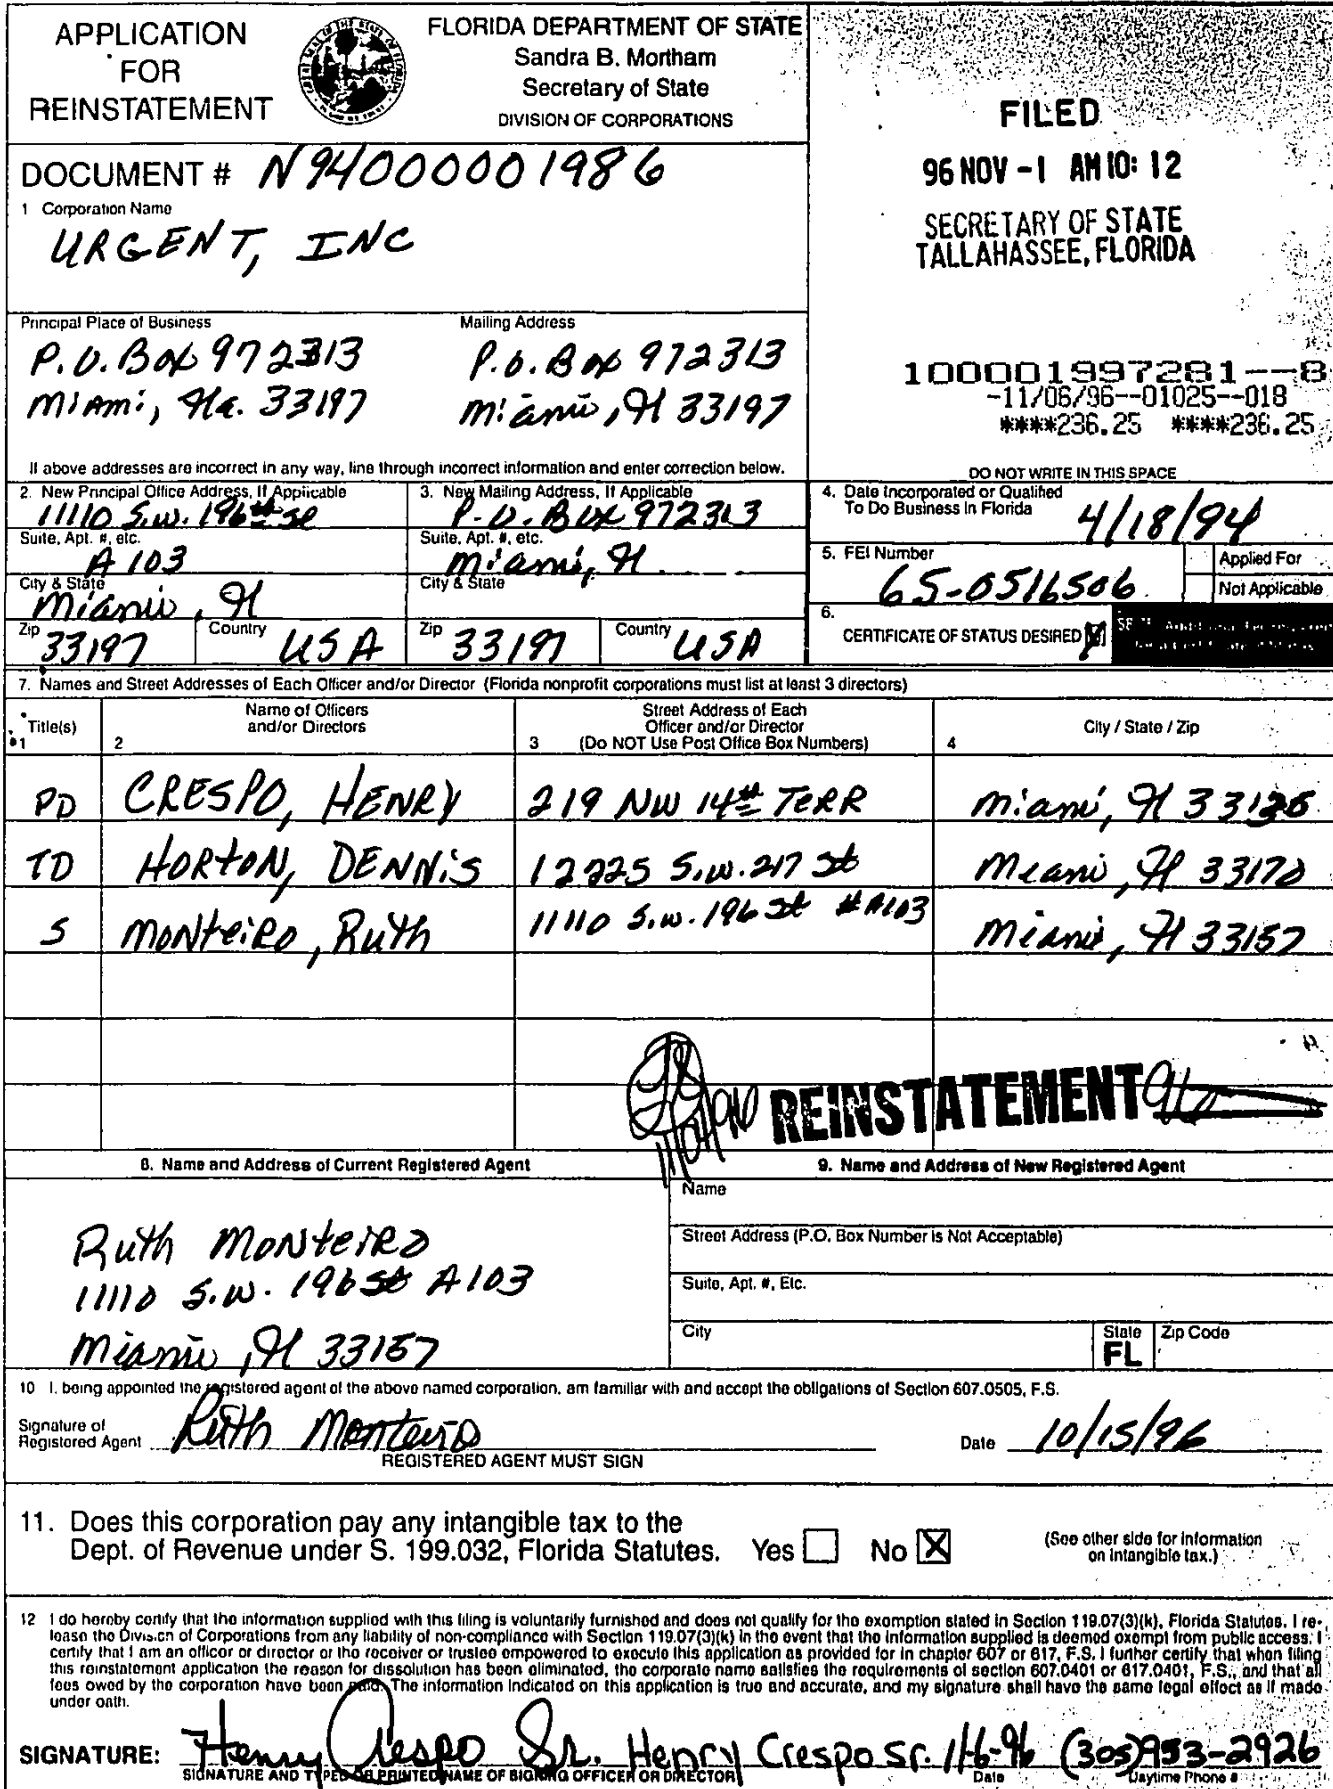 APPLICATION
FOR
REINSTATEMENT
FLORIDA DEPARTMENT OF STATE
Sandra B. Mortham
Secretary of State
DIVISION OF CORPORATIONS
FILED
96 NOV -1 AM 10: 12
SECRETARY OF STATE
TALLAHASSEE, FLORIDA
DOCUMENT # N94000001986
1 Corporation Name
URGENT, INC
Principal Place of Business
P.O. Box 972313
Miami, Fla. 33197
Mailing Address
P.O. Box 972313
Miami, Fl 33197
100001997281--8
-11/06/96--01025--018
****236.25 ****236.25
If above addresses are incorrect in any way, line through incorrect information and enter correction below.
DO NOT WRITE IN THIS SPACE
2. New Principal Office Address, If Applicable
11110 S.W. 196th St
Suite, Apt. #, etc.
A 103
City & State
Miami, Fl
Zip 33197 Country USA
3. New Mailing Address, If Applicable
P.O. Box 972313
Suite, Apt. #, etc.
Miami, Fl.
City & State
Zip 33197 Country USA
4. Date Incorporated or Qualified
To Do Business in Florida 4/18/94
5. FEI Number
65-0516506
Applied For
Not Applicable
6.
CERTIFICATE OF STATUS DESIRED X
7. Names and Street Addresses of Each Officer and/or Director (Florida nonprofit corporations must list at least 3 directors)
Title(s)
1
Name of Officers
and/or Directors
2
Street Address of Each
Officer and/or Director
3 (Do NOT Use Post Office Box Numbers)
City / State / Zip
4
PD CRESPO, HENRY 219 NW 14th TERR Miami, Fl
TD HORTON, DENNIS 12225 S.W. 217 St Miami, Fl 33170
S Monteiro, Ruth 11110 S.W. 196 St #A103 Miami, Fl 33157
REINSTATEMENT
8. Name and Address of Current Registered Agent
Ruth Monteiro
11110 S.W. 196 St A103
Miami, Fl 33157
9. Name and Address of New Registered Agent
Name
Street Address (P.O. Box Number is Not Acceptable)
Suite, Apt. #, Etc.
City
State
FL
Zip Code
10 I, being appointed the registered agent of the above named corporation, am familiar with and accept the obligations of Section 607.0505, F.S.
Signature of
Registered Agent Ruth Monteiro
REGISTERED AGENT MUST SIGN
Date 10/15/96
11. Does this corporation pay any intangible tax to the
Dept. of Revenue under S. 199.032, Florida Statutes. Yes No X
(See other side for information
on intangible tax.)
12 I do hereby certify that the information supplied with this filing is voluntarily furnished and does not qualify for the exemption stated in Section 119.07(3)(k), Florida Statutes. I re-
lease the Division of Corporations from any liability of non-compliance with Section 119.07(3)(k) in the event that the information supplied is deemed exempt from public access. I
certify that I am an officer or director or the receiver or trustee empowered to execute this application as provided for in chapter 607 or 617, F.S. I further certify that when filing
this reinstatement application the reason for dissolution has been eliminated, the corporate name satisfies the requirements of section 607.0401 or 617.0401, F.S., and that all
fees owed by the corporation have been paid. The information indicated on this application is true and accurate, and my signature shall have the same legal effect as if made
under oath.
SIGNATURE: Henry Crespo Sr. Henry Crespo Sr. (305)953-2926
SIGNATURE AND TYPED OR PRINTED NAME OF SIGNING OFFICER OR DIRECTOR
Date
Daytime Phone #